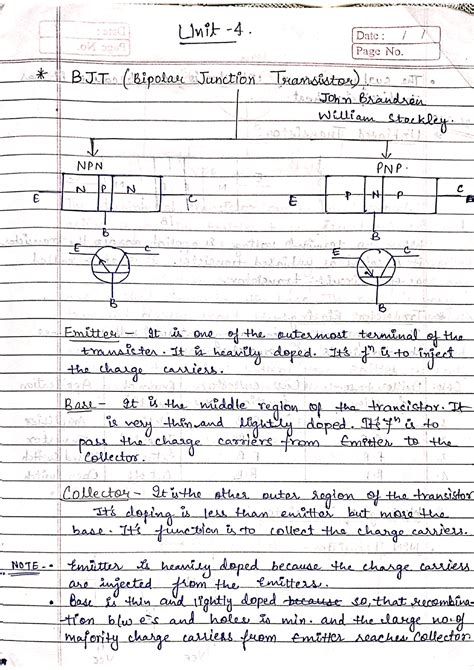 Unit - 4.
Date : / /
Page No.
* B.J.T (Bipolar Junction Transistor)
John Brandren
William Stockley.
NPN
PNP.
E N P N C
E P N P C
B
B
E C
E C
B
B
Emitter - It is one of the outermost terminal of the
transister. It is heavily doped. It's fⁿ is to inject
the charge carriers.
Base - It is the middle region of the trancistor. It
is very thin and lightly doped. It's fⁿ is to
pass the charge carriers from Emitter to the
Collector.
Collector - It is the other outer region of the transistor
It's doping is less than emitter but more the
base. It's function is to collect the charge carriers.
NOTE - • Emitter is heavily doped because the charge carriers
are injected from the Emitters.
• Base is thin and lightly doped because so, that recombina-
tion b/w e⁻s and holes is min. and the large no. of
majority charge carriers from Emitter reaches Collector